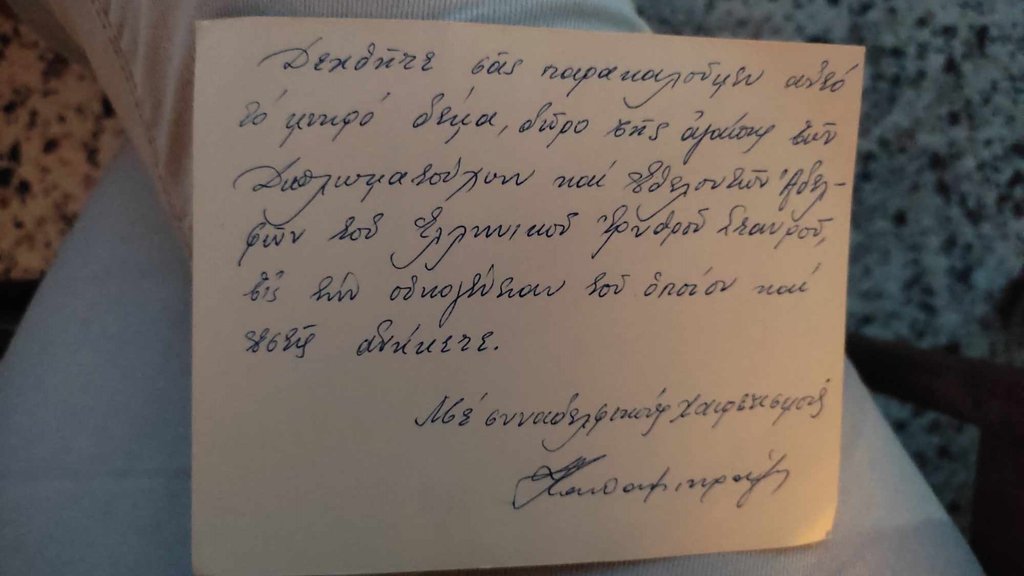 Δεχθῆτε σᾶς παρακαλοῦμεν αὐτό
τό μικρό δέμα, δῶρο τῆς ἀγάπης τῶν
Διπλωματούχων καί Ἐθελοντῶν Ἀδελ-
φῶν τοῦ Ἑλληνικοῦ Ἐρυθροῦ Σταυροῦ,
εἰς τήν οἰκογένειαν τοῦ ὁποίου καί
ἐσεῖς ἀνήκετε.
Μέ συναδελφικούς χαιρετισμούς